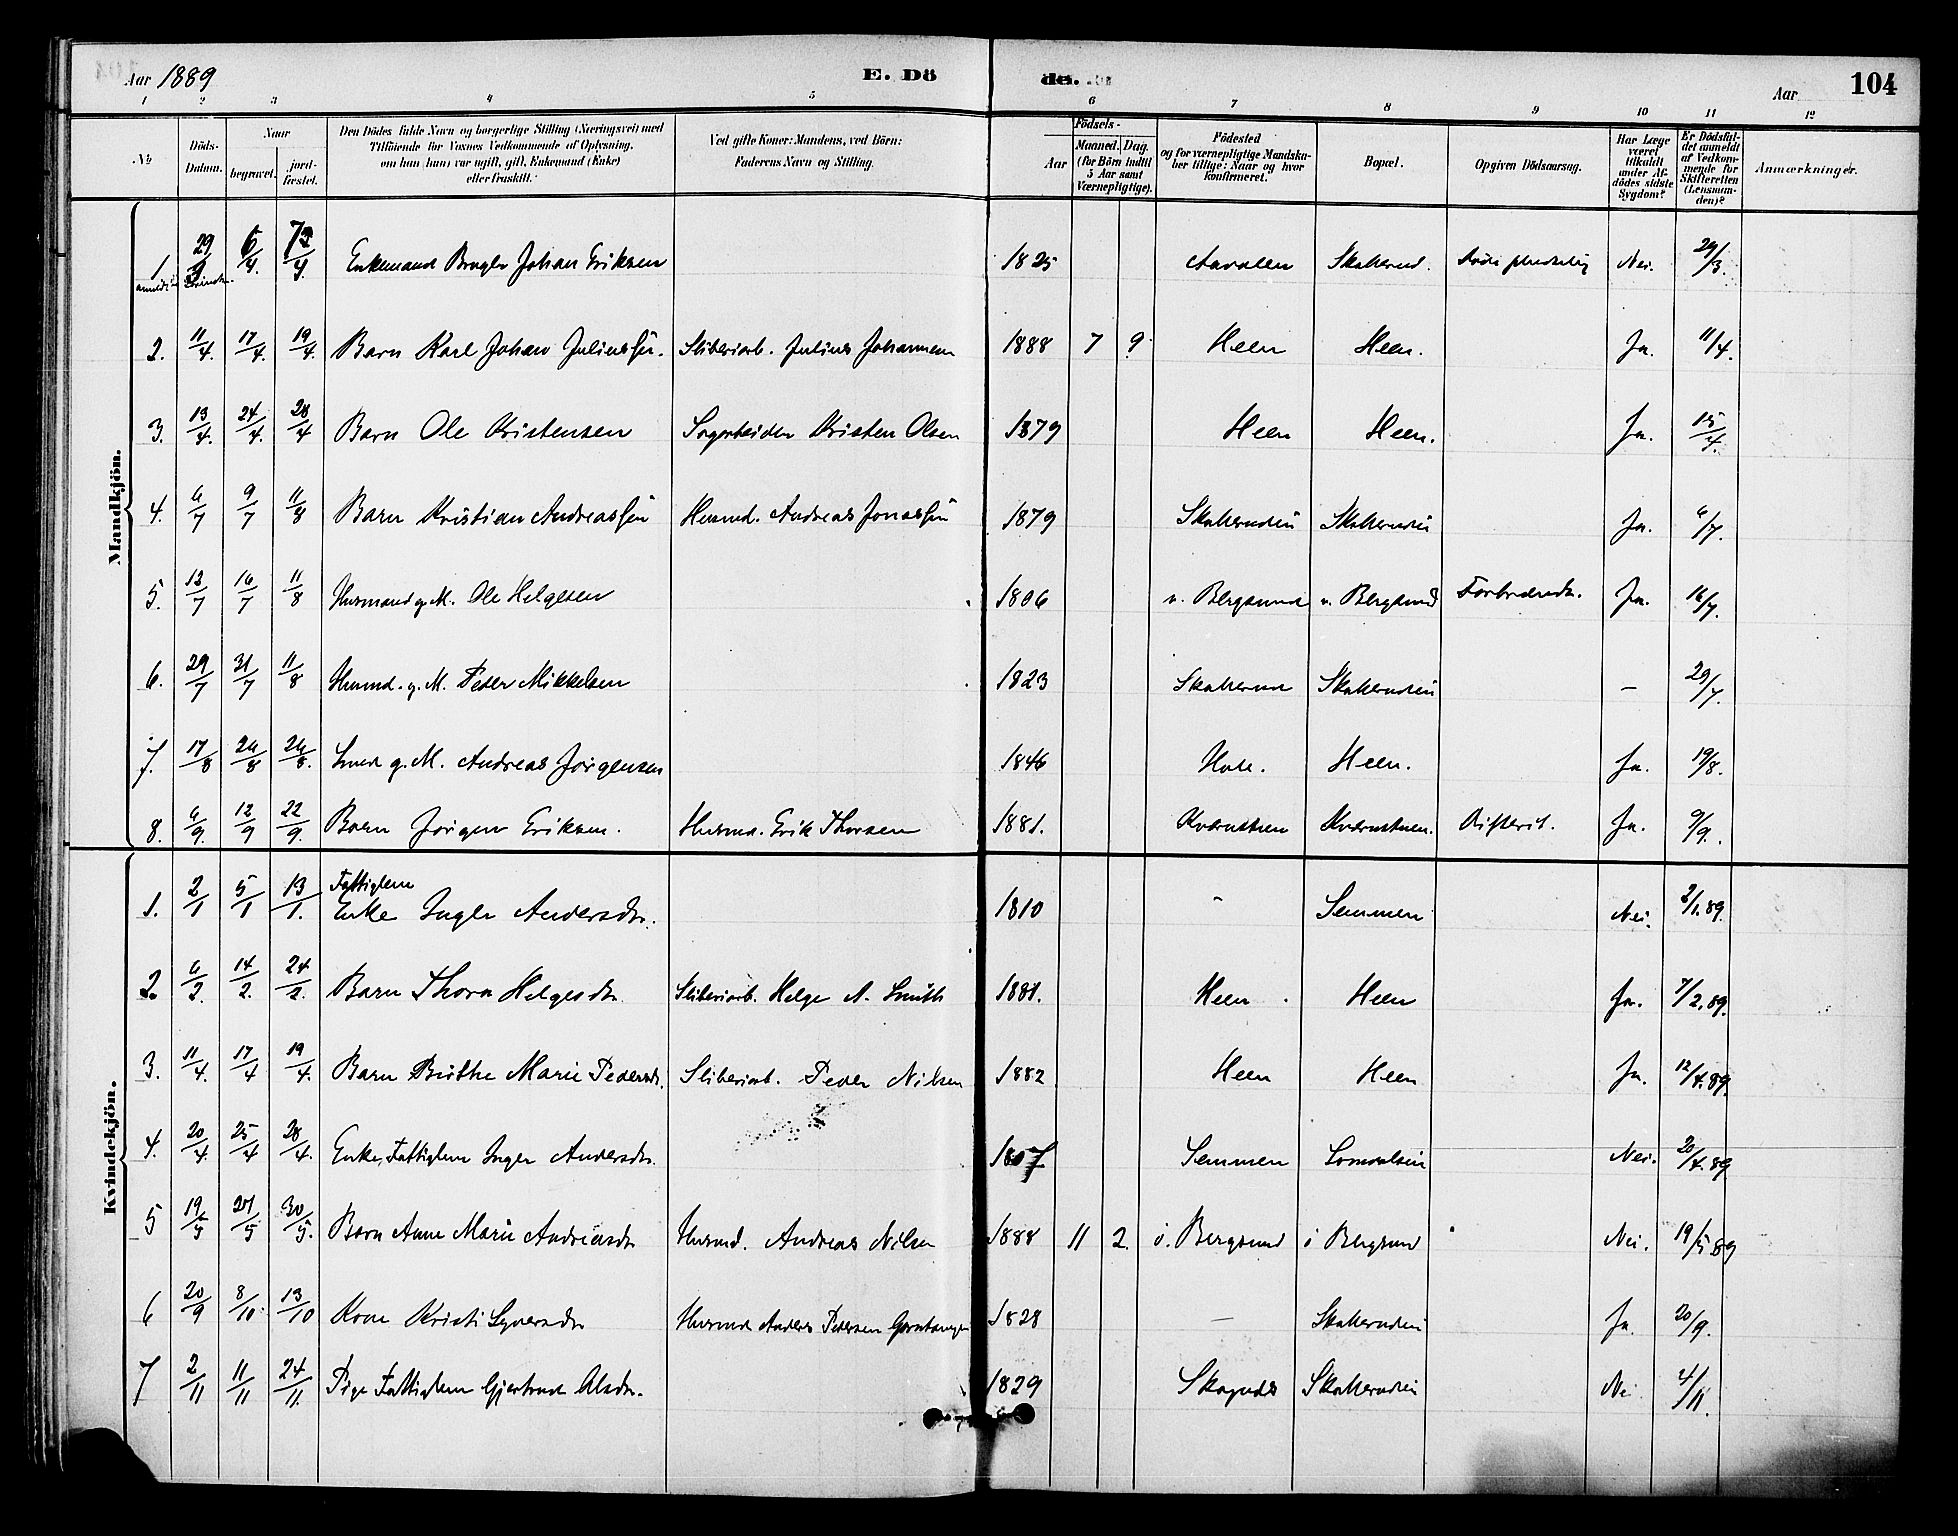 Aar 1889 E. Dö de. Aar 104
1 2 3 4 5 6 7 8 9 10 11 12
No Döds-Datum. Naar begravet. jord-fæstet. Den Dödes fulde Navn og borgerlige Stilling (Næringsvei) med Tilföiende for Voxnes Vedkommende af Oplysning, om han (hun) var ugift, gift, Enkemand (Enke) eller fraskilt. Ved gifte Koner: Mandens, ved Börn: Faderens Navn og Stilling. Födsels- Aar Maaned. Dag. (for Börn indtil 5 Aar samt Værnepligtige). Födested og for værnepligtige Mandskaber tillige: Naar og hvor konfirmeret. Bopæl. Opgiven Dödsaarsag. Har Læge været tilkaldt under Afdödes sidste Sygdom? Er Dödsfaldet anmeldt af Vedkommende for Skifteretten (Lensmanden)? Anmærkninger.
Mandkjön.
1 29/3 6/4. 7/4 Enkemand Johan Eriksen 1825 Skollerud. Nei. 29/3.
2. 11/4. 17/4. 19/4. Barn Karl Johan Juliussön. Sliberiarb. Julius Johannesen 1888 7 9 Heen Heen. Ja. 11/4.
3. 13/4. 24/4. 28/4 Barn Ole Kristensen Kristen Olsen 1879 Heen Heen. Ja. 15/4.
4. 6/7 9/7 11/8 Barn Kristian Andreassön Husmd. Andreas Jonassön 1879 Ja. 6/7.
5. 12/7 16/7 11/8 Husmand g. M. Ole Helgesen 1806 v. Bergsund v. Bergsund Ja. 16/7.
6. 29/7 31/7 11/8 Husmd. g. M. Peder Mikkelsen 1823 – 29/7.
7. 17/8 24/8 24/8. Smed g. M. Andreas Jörgensen 1846 Hole. Heen. Ja. 19/8.
8. 6/9. 12/9 22/9. Barn Jörgen Eriksen. Husmd. Erik Thorsen 1881. Difterit. Ja. 9/9.
Kvindekjön.
1. 2/1 5/1 13/1. Fattiglem
Enke Ingler Andersdtr. 1810 – Semmen Nei. 2/1.89.
2. 6/2. 14/2. 24/2. Barn Thora Helgesdtr. Sliberiarb. Helge A. Smith 1881. Heen Heen Ja. 7/2.89.
3. 11/4. 17/4 19/4. Barn Birthe Marie Pedersdtr. Sliberiarb. Peder Nilsen 1882 Heen Heen Ja. 12/4.89.
4. 20/4. 25/4 28/4. Enke, Fattiglem Inger Andersdtr. 1807 Semmen Nei. 20/4.89
5 19/5 27/5 30/5. Barn Anne Marie Andreasdtr Husmd. Andreas Nilsen 1888 11 2. ö. Bergsund ö Bergsund Nei. 19/5 89
6 20/9 8/10. 13/10 Kone Kristi Syversdtr Husmd Anders Pedersen 1828 – Ja. 20/9.
7 2/11 11/11 24/11. Pige Fattiglem Gjertrud Olsdtr. 1829 Nei 4/11.